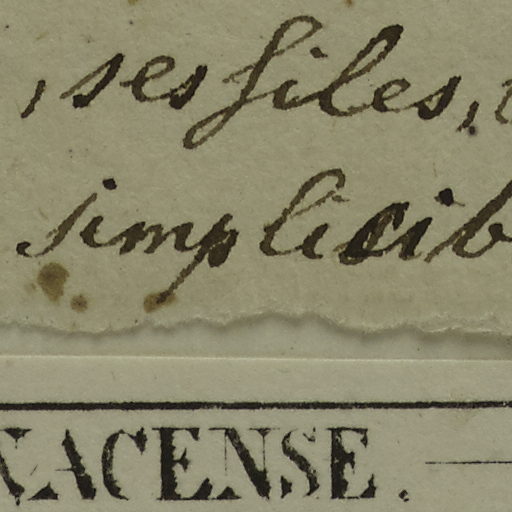 , sessiles,
simplicib
ACENSE.